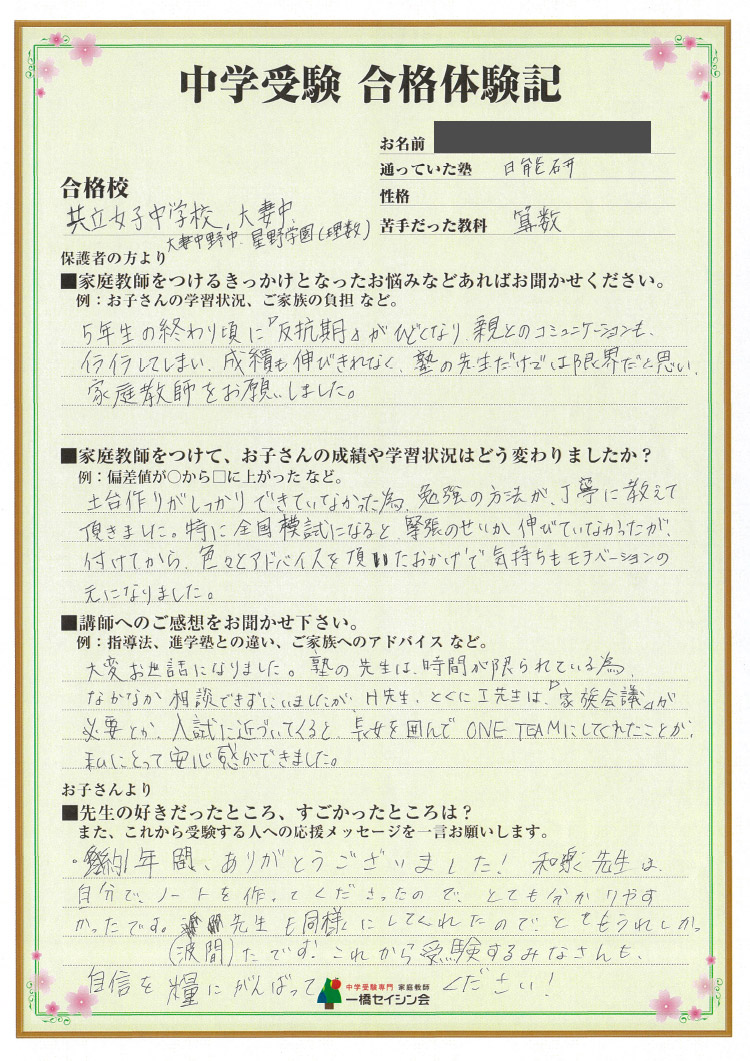 中学受験 合格体験記
お名前
通っていた塾 日能研
合格校
性格
共立女子中学校、大妻中、
大妻中野中、星野学園(理数)
苦手だった教科 算数
保護者の方より
■家庭教師をつけるきっかけとなったお悩みなどあればお聞かせください。
例：お子さんの学習状況、ご家族の負担 など。
5年生の終わり頃に『反抗期』がひどくなり、親とのコミュニケーションも、
イライラしてしまい、成績も伸びきれなく、塾の先生だけでは限界だと思い、
家庭教師をお願いしました。
■家庭教師をつけて、お子さんの成績や学習状況はどう変わりましたか？
例：偏差値が○から□に上がった など。
土台作りがしっかりできていなかった為、勉強の方法が、丁寧に教えて
頂きました。特に全国模試になると、緊張のせいか伸びていなかったが、
付けてから、色々とアドバイスを頂いたおかげで気持ちもモチベーションの
元になりました。
■講師へのご感想をお聞かせ下さい。
例：指導法、進学塾との違い、ご家族へのアドバイス など。
大変お世話になりました。塾の先生は、時間が限られている為、
なかなか相談できずにいましたが、H先生、とくにI先生は、『家族会議』が
必要とか、入試に近づいてくると、長女を囲んでONE TEAMにしてくれたことが、
私にとって安心感ができました。
お子さんより
■先生の好きだったところ、すごかったところは？
また、これから受験する人への応援メッセージを一言お願いします。
・約1年間、ありがとうございました！ 和泉先生は、
自分で、ノートを作ってくださったので、とても分かりやす
かったです。先生も同様にしてくれたので、とてもうれしかっ
(波間)たです。これから受験するみなさんも、
自信を糧にがんばってください！
中学受験専門 家庭教師
一橋セイシン会